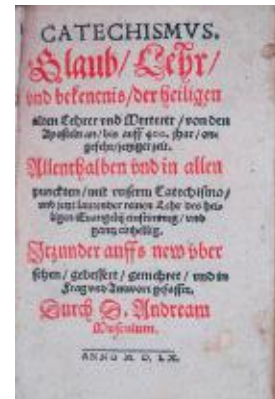 CATECHISMVS.
Glaub/ Lehr/
vnd bekenenis/ der heiligen
alten Lehrer vnd Merterer/ von den
Aposteln an/ bis auff 400. jhar/ an-
gesehn/ jetziger zeit.
Allenthalben vnd in allen
puncten/ mit vnserm Catechismo/
vnd jetzt lautender reinen Lehr des hei-
ligen Euangelij einstimmig/ vnd
gantz einhellig.
Itzunder auffs new vber
sehen/ gebessert/ gemehret/ vnd in
Frag vnd Antwort gefasset.
Durch D. Andream
Musculum.
ANNO M. D. LX.